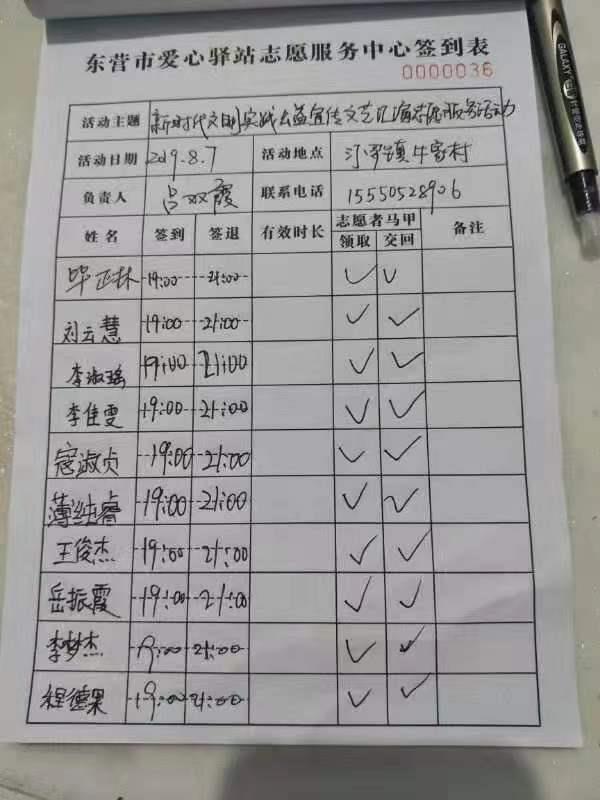 东营市爱心驿站志愿服务中心签到表
0000036
活动主题 新时代文明实践公益宣传文艺汇演志愿服务活动
活动日期 2019.8.7 活动地点 汀罗镇牛家村
负责人 吕双霞 联系电话 15550528906
姓名 签到 签退 有效时长 志愿者马甲 备注
领取 交回
毕正林 19:00 21:00 ✓ ✓
刘云慧 19:00 21:00 ✓ ✓
李淑瑶 19:00 21:00 ✓ ✓
李佳雯 19:00 21:00 ✓ ✓
寇淑贞 19:00 21:00 ✓ ✓
薄纯睿 19:00 21:00 ✓ ✓
王俊杰 19:00 21:00 ✓ ✓
岳振霞 19:00 21:00 ✓ ✓
李梦杰 19:00 21:00 ✓ ✓
程德果 19:00 21:00 ✓ ✓
GALAXY